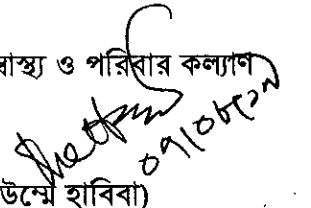 বাস্থ্য ও পরিবার কল্যাণ
০৭/০৮/১৭
উম্মে হাবিবা)